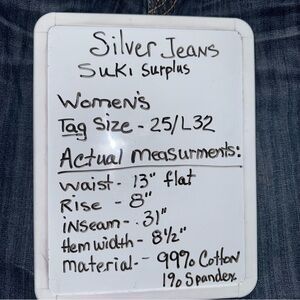 Silver Jeans
Suki Surplus
Women's
Tag Size - 25/L32
Actual Measurments:
Waist - 13" flat
Rise - 8"
inseam - 31"
Hem Width - 8½"
Material - 99% Cotton
1% Spandex